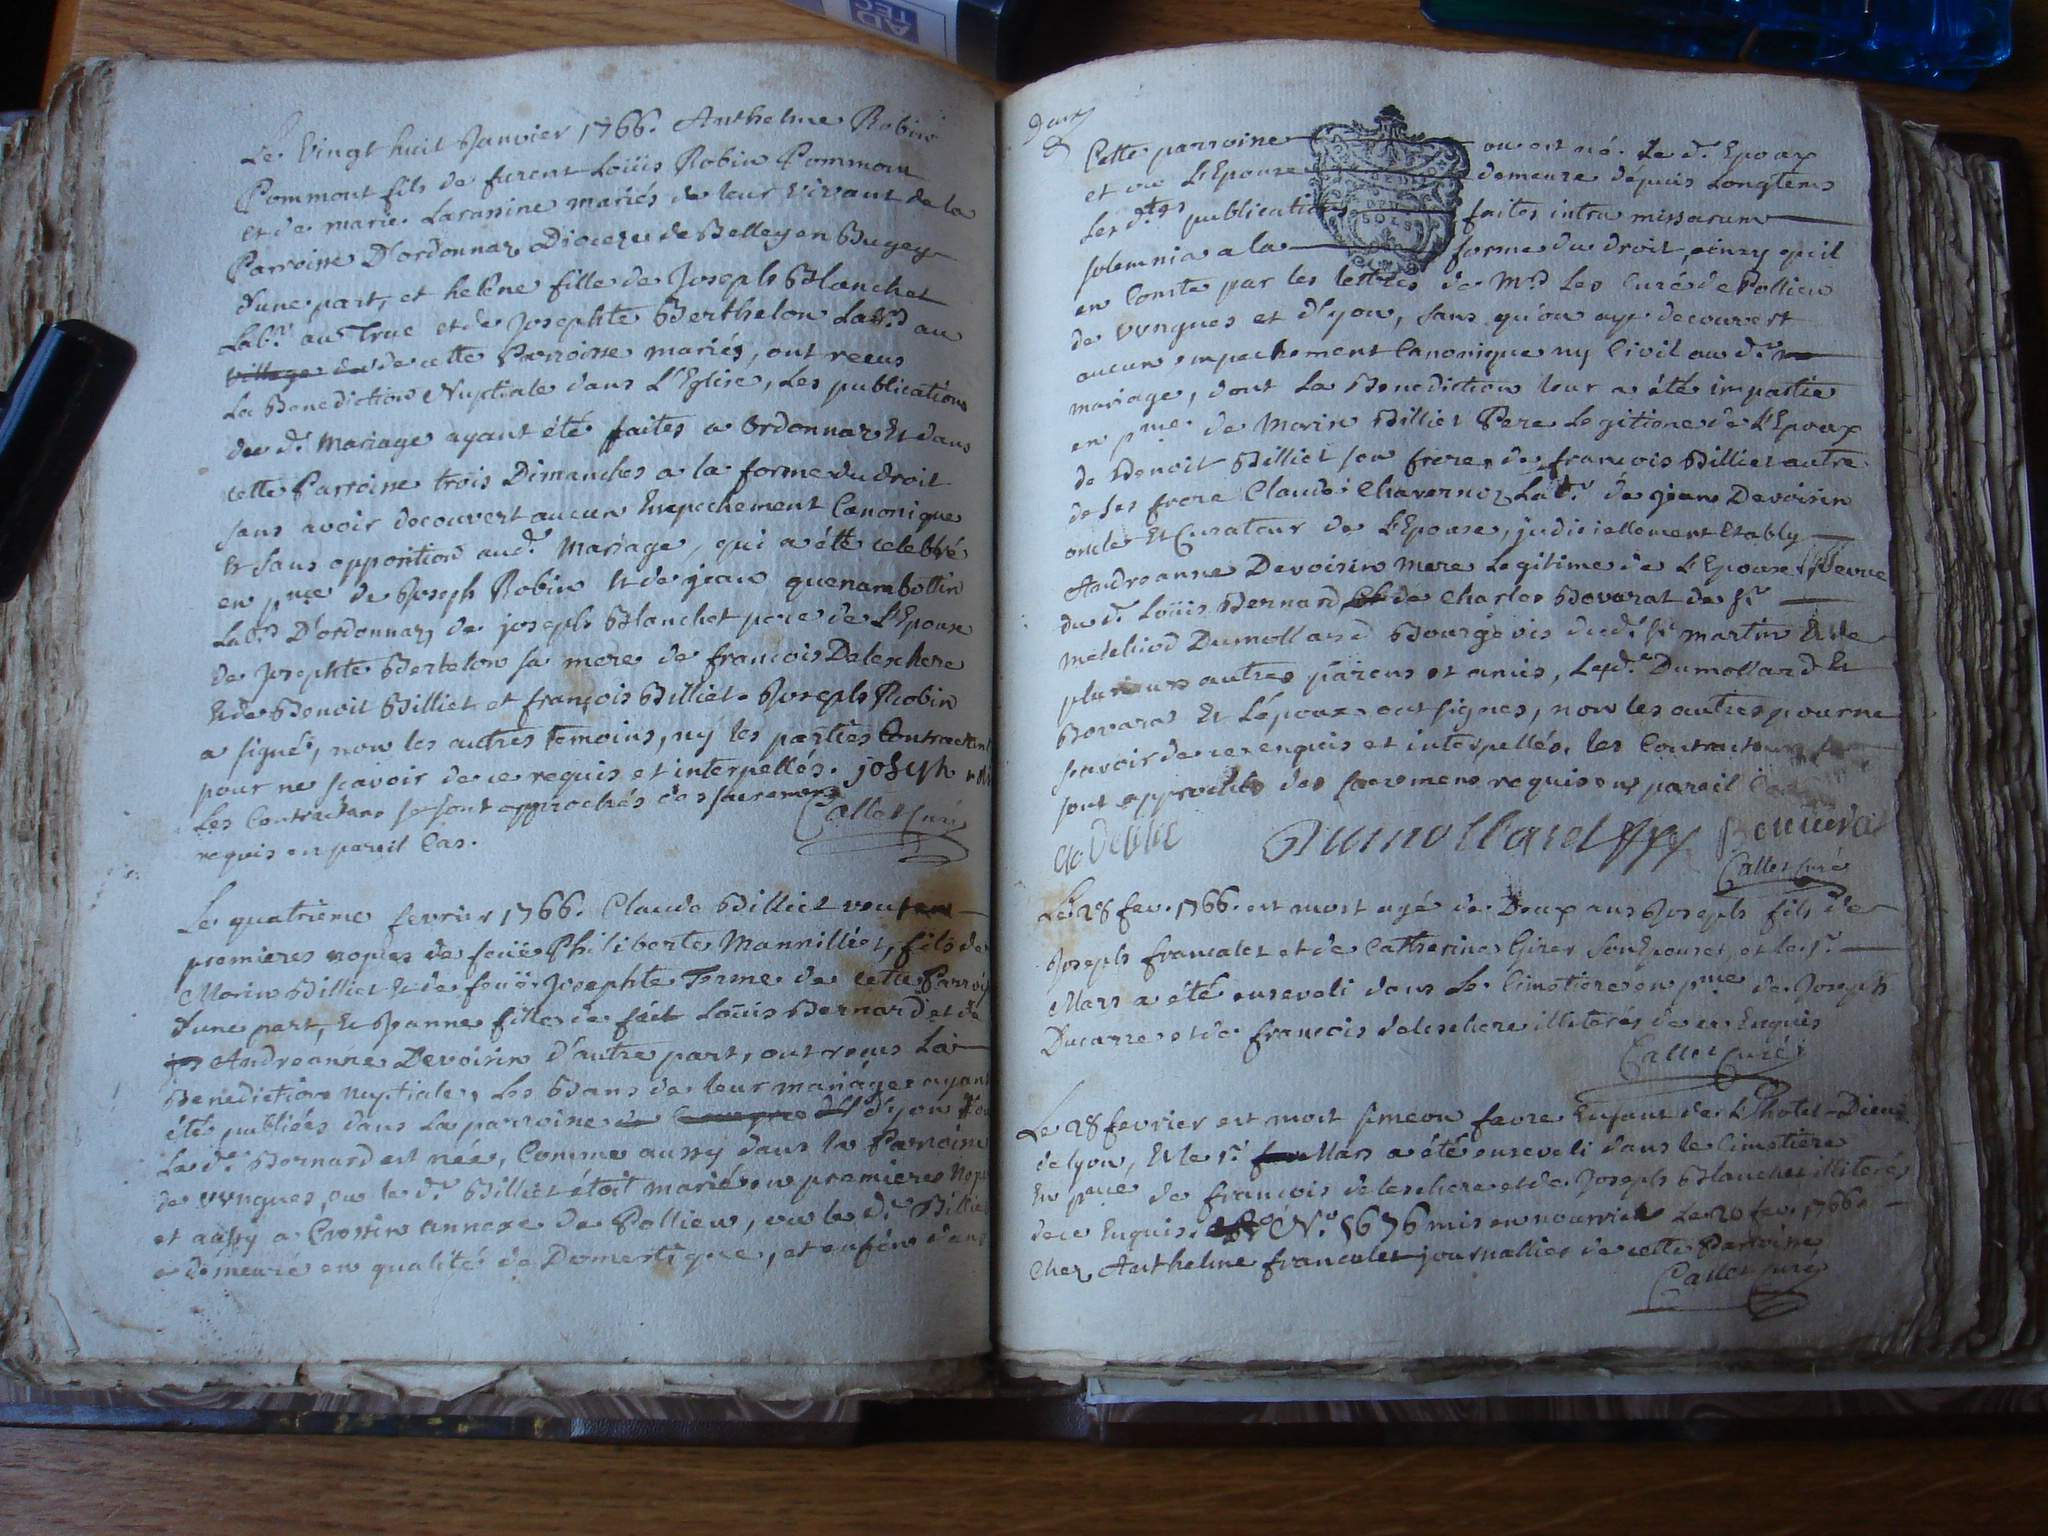 Le Vingt huit Janvier 1766. Anthelme Robin
Pommont fils de furent Loüis Robin Pommont
et de marie Larassine mariés de leur vivant de la
Parroisse D'ordonnaz Dioceze de Belley en Bugey
d'une part, et heléne fille de Joseph Blanchet
Lab.r au Truc et de Josephte Berthelon Lab.rd au
village de cette Parroisse mariés, ont recus
La Benediction Nuptiale dans L'Eglise, Les publications
du d.t Mariage ayant été faites a Ordonnaz Et dans
cette Parroisse trois Dimanches a la forme du droit
sans avoir decouvert aucun Empechement Canonique
Et sans opposition aud.t Mariage, qui a été celebré
en p.nce de Joseph Robin Et de jean quenambottin
Lab.rd D'ordonnaz, de joseph Blanchet pere de L'Epouse
de Josephte Bertelon sa mere de francois Deleschere
Et de Benoit Billiet et françois Billiet. Joseph Robin
a signé, non les autres Temoins, ny les parties Contractant
pour ne scavoir de ce requis et interpellés. joseph
Les Contractans se sont approchés des sacremens
requis en pareil Cas. Callet Curé
Le quatrieme fevrier 1766. Claude Billiet veuf en
premieres nopces de feüe Philiberte Mannilliet, fils de
Marin Billiet Et de feüe Josephte Terme de cette Parroi
d'une part, Et Jeanne fille de feu Loüis Bernard et de
Andreanne Devoisin d'autre part, ont recus La
Benediction Nuptiale, Les Bans de leur mariage ayant
été publiées dans La parroisse d'Yon d'ou
La d.te Bernard est née, Comme aussy dans la Parroisse
de vongnes, ou le d.t Billiet étoit marié en premieres Nopc
et aussy a Crossin annexe de Pollieu, ou le d.t Billiet
a demeuré en qualité de Domestique, et enfin dans
Deux
Cette parroisse ou est né le d.t Epoux
et ou L'Epouse demeure depuis Longtems
Les d.tes publications faites intra missarum
solemnia a la forme du droit, ainsy qu'il
en Conste par les lettres de M.rs Les Curé de Pollieu
de vongnes et d'yon, sans qu'on aye decouvert
aucun empechement Canonique ny Civil au d.t
mariage, dont La Benediction leur a été impartie
en p.nce de Marin Billiet Pere Legitime de L'Epoux
de Benoit Billiet son frere, de francois Billiet autre
de ses frere Claude Chavernoz Lab.r de jean Devoisin
oncle Et Curateur de L'Epouse, judiciellement Etably
Andreanne Devoisin mere Legitime de L'Epouse veuve
du d.t Loüis Bernard, de Charles Bovarat de S.t
Dumollard Bourgeois dud.t S.t martin Et de
plusieurs autres parens et amis, Led.t Dumollard Et
Bovarat Et L'époux ont signes, non les autres pour ne
scavoir de ce enquis et interpellés. les Contractans se
sont approchés des sacremens requis en pareil Cas
Dumollard Bouvard
Callet Curé
Le 28 fev. 1766. est mort agé de Deux ans Joseph fils de
Joseph francalet et de Catherine Girer son Epouse, et le 1.r
Mars a été enseveli dans Le Cimetiere en p.nce de Joseph
Ducarre et de francois deleschere illiterés de ce Enquis
Callet Curé
Le 28 fevrier est mort simeon favre Enfant de L'hotel-Dieu
de lyon, Et le 1.r Mars a été enseveli dans le Cimetiere
En p.nce de francois deleschere et de Joseph Blanchet illiterés
de ce Enquis. N.o 5676 mis en nourrice Le 20 fev. 1766.
Chez Anthelme francalet journallier de cette Parroisse
Callet Curé